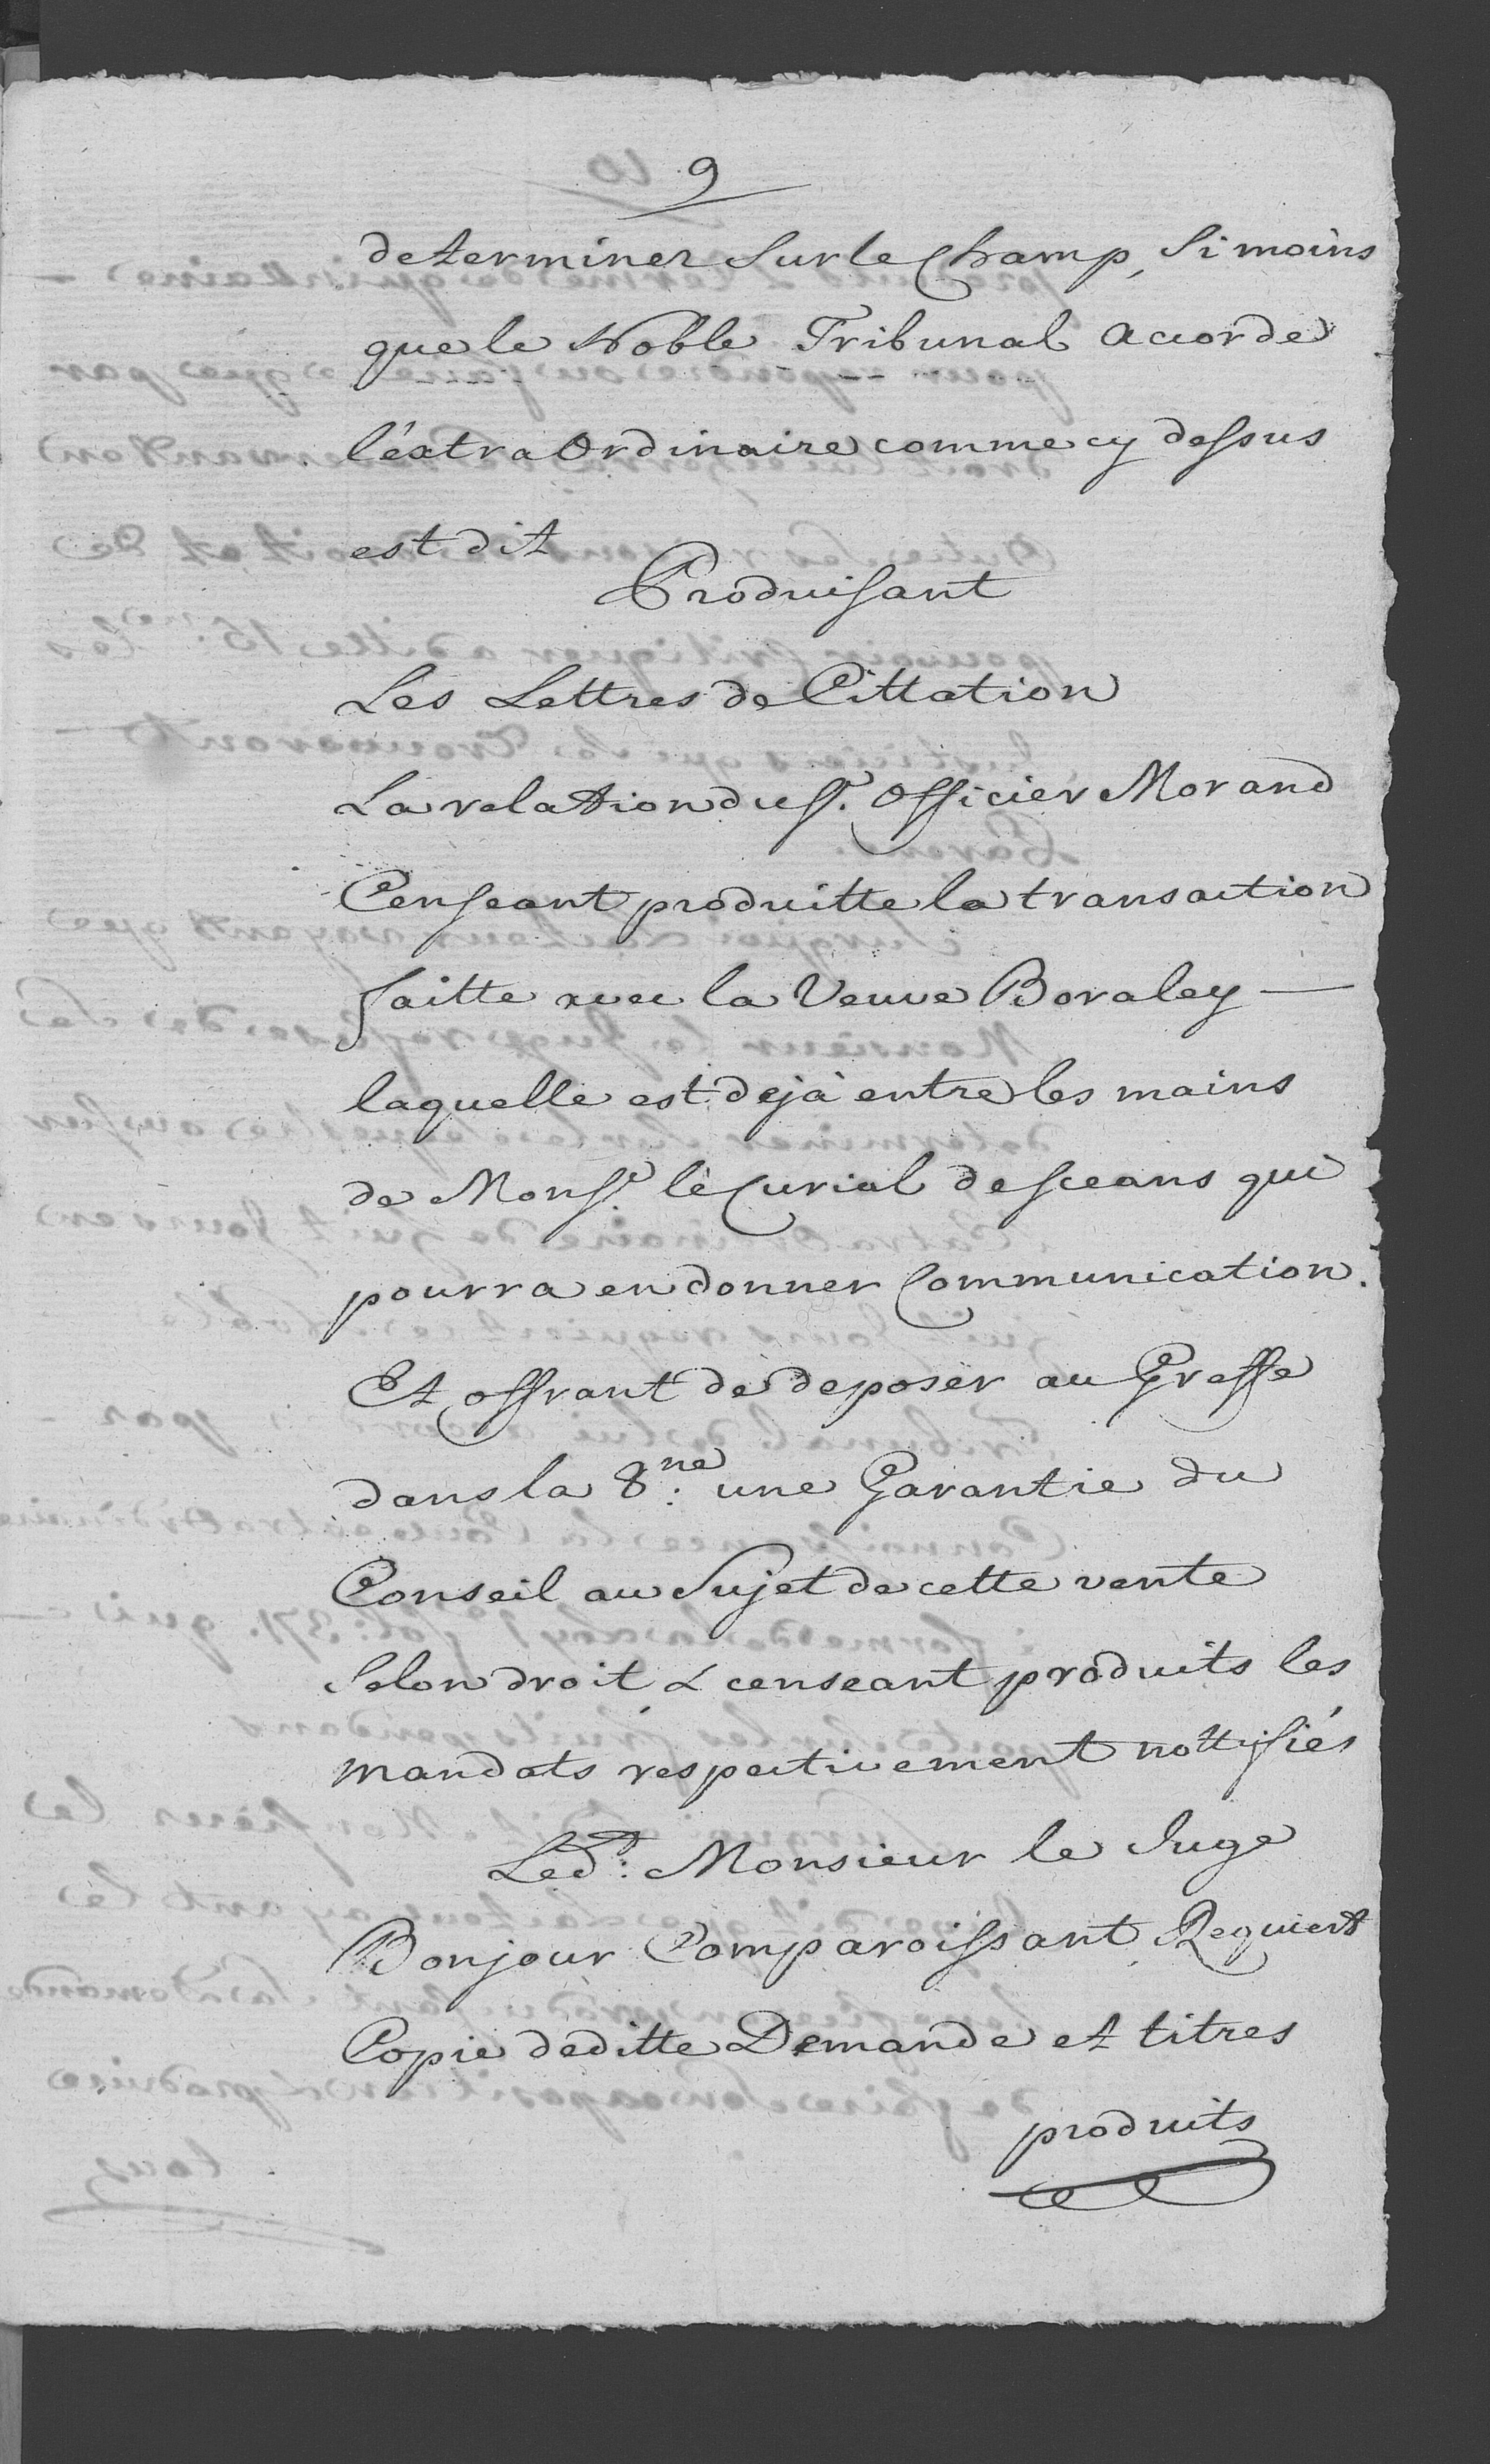 9
determiner Sur le Champ, Si moins
que le Noble Tribunal accorde
l'éxtra Ordinaire comme cy dessus
est dit
Produisant
Les Lettres de Cittation
La relation du Sr. Officier Morand
Censeant produitte la transaction
faitte avec la Veuve Bovaley —
laquelle est dejà entre les mains
de Monsr. le Curial de sceans qui
pourra en donner Communication.
Et offrant de deposer au Greffe
dans la 8.ne une Garantie du
Conseil au Sujet de cette vente
Selon droit & censeant produits les
mandats respectivement nottifiés
Led.t: Monsieur le Juge
Bonjour Comparoissant Requiert
Copie deditte Demande et titres
produits